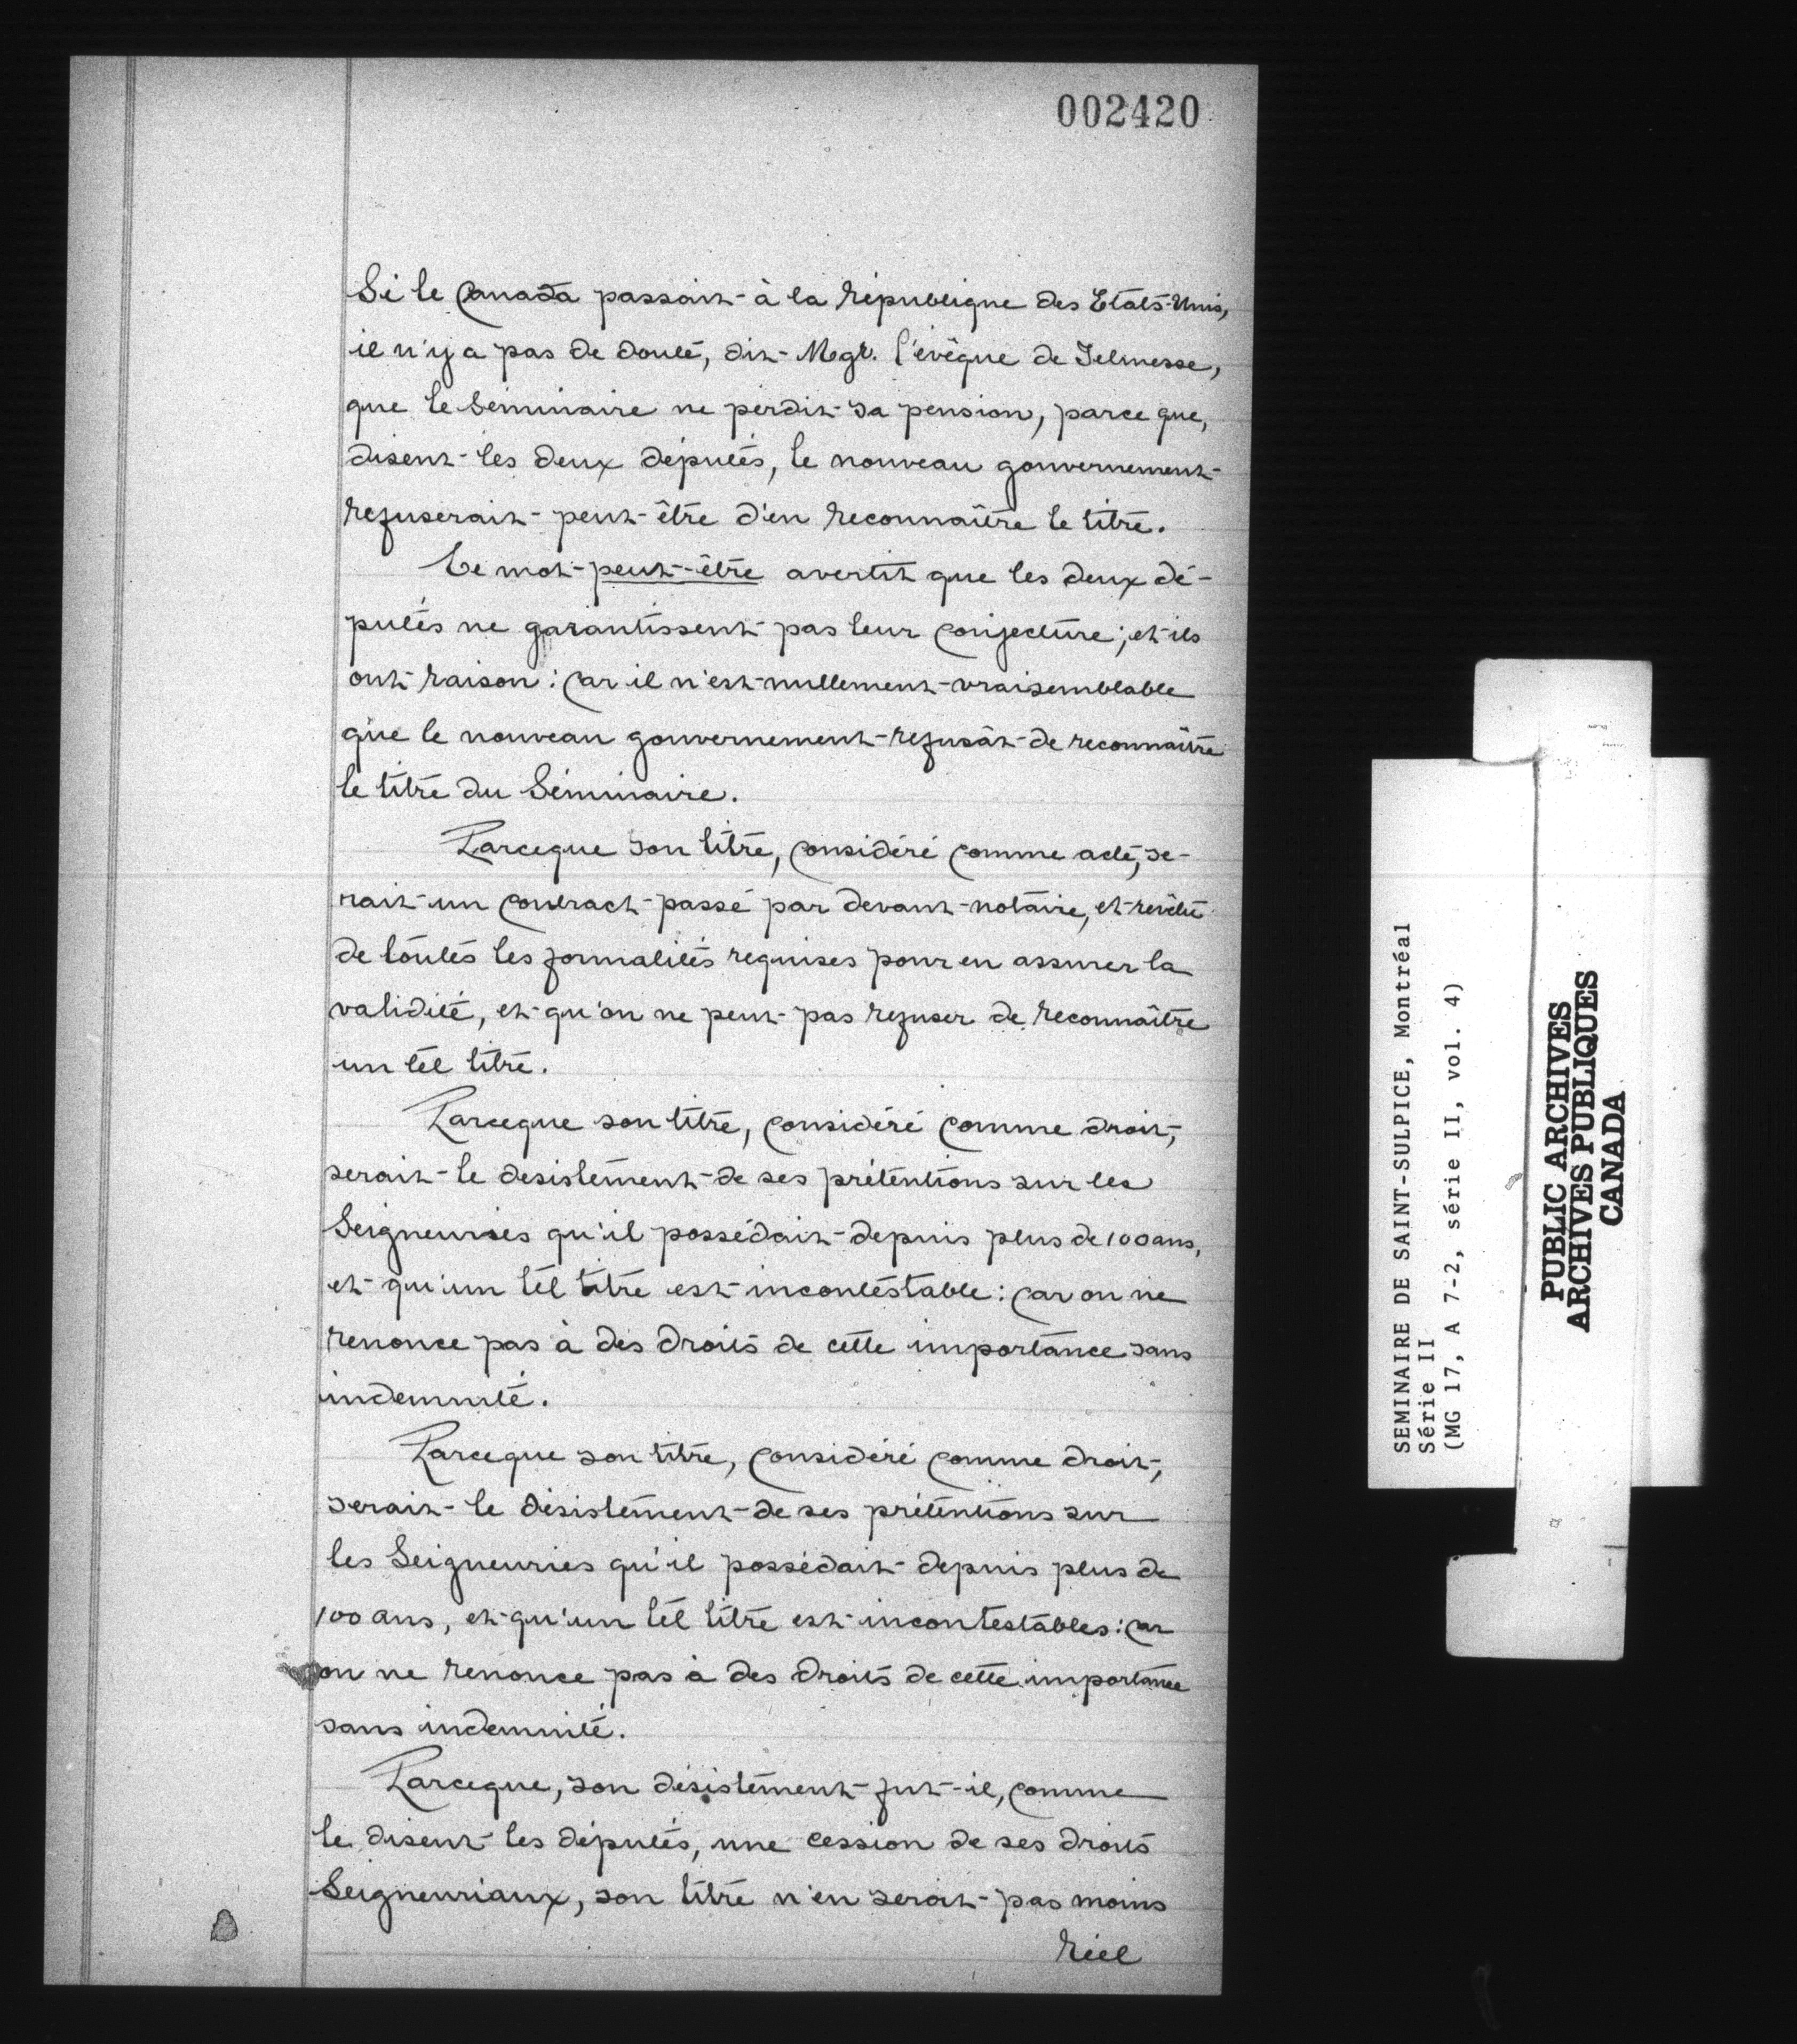 002420
Si le Canada passait à la république des Etats-Unis,
il n'y a pas de doute, dit Mgr. l'évêque de Telmesse,
que le Séminaire ne perdit sa pension, parce que,
disent les deux députés, le nouveau gouvernement
refuserait peut-être d'en reconnaître le titre.
Le mot peut-être avertit que les deux dé-
putés ne garantissent pas leur conjecture; et ils
ont raison: car il n'est nullement vraisemblable
que le nouveau gouvernement refusât de reconnaître
le titre du Séminaire.
Parceque son titre, considéré comme acte, se-
rait un contract passé par devant notaire, et revêtu
de toutes les formalités requises pour en assurer la
validité, et qu'on ne peut pas refuser de reconnaître
un tel titre.
Parceque son titre, considéré comme droit,
serait le desistement de ses prétentions sur les
Seigneuries qu'il possédait depuis plus de 100 ans,
et qu'un tel titre est incontestable: car on ne
renonce pas à des droits de cette importance sans
indemnité.
Parceque son titre, considéré comme droit,
serait le désistement de ses prétentions sur
les Seigneuries qu'il possédait depuis plus de
100 ans, et qu'un tel titre est incontestables: car
on ne renonce pas à des droits de cette importance
sans indemnité.
Parceque, son désistement fut-il, comme
le disent les députés, une cession de ses droits
Seigneuriaux, son titre n'en serait pas moins
réel
SEMINAIRE DE SAINT-SULPICE, Montréal
Série II
(MG 17, A 7-2, série II, vol. 4)
PUBLIC ARCHIVES
ARCHIVES PUBLIQUES
CANADA